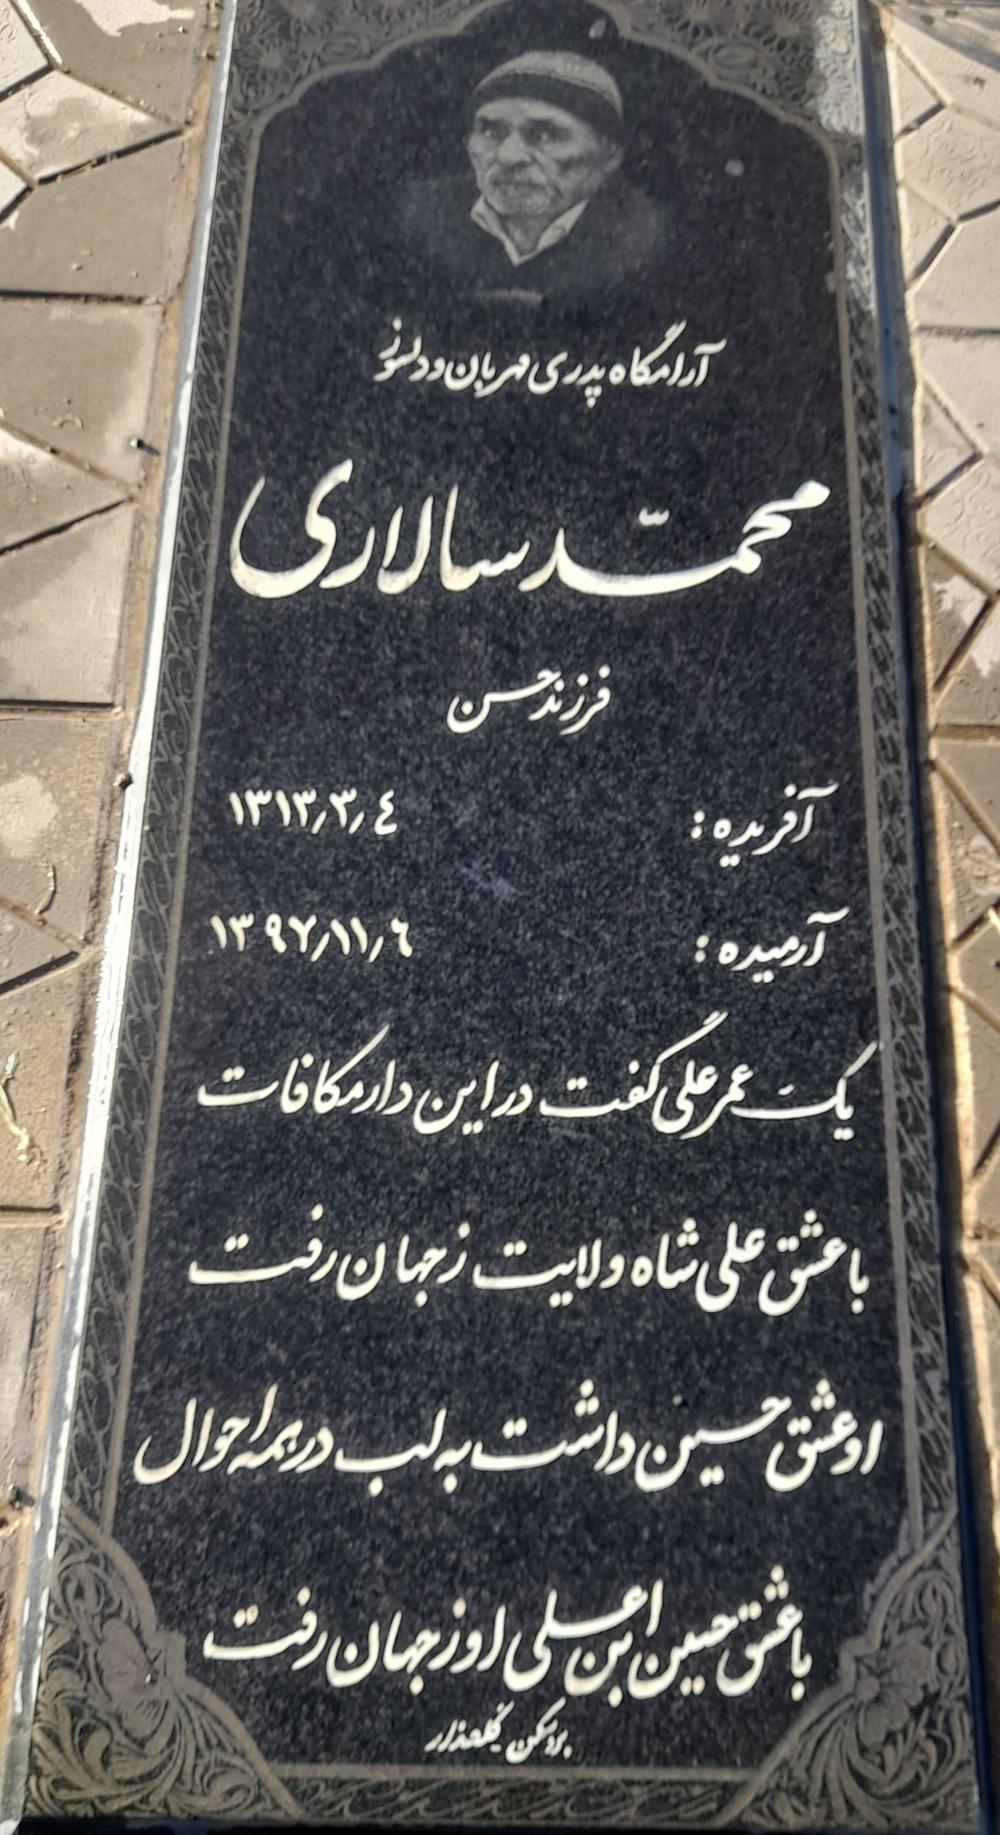 آرامگاه پدری مهربان و دلسوز
محمّد سالاری
فرزند حسن
آفریده : ۱۳۱۳٫۳٫٤
آرمیده : ۱۳۹۷٫۱۱٫٦
یک عمر علی گفت در این دار مکافات
با عشق علی شاه ولایت ز جهان رفت
او عشق حسین داشت به لب در همه احوال
با عشق حسین ابن علی او ز جهان رفت
بردسکن گلعذار